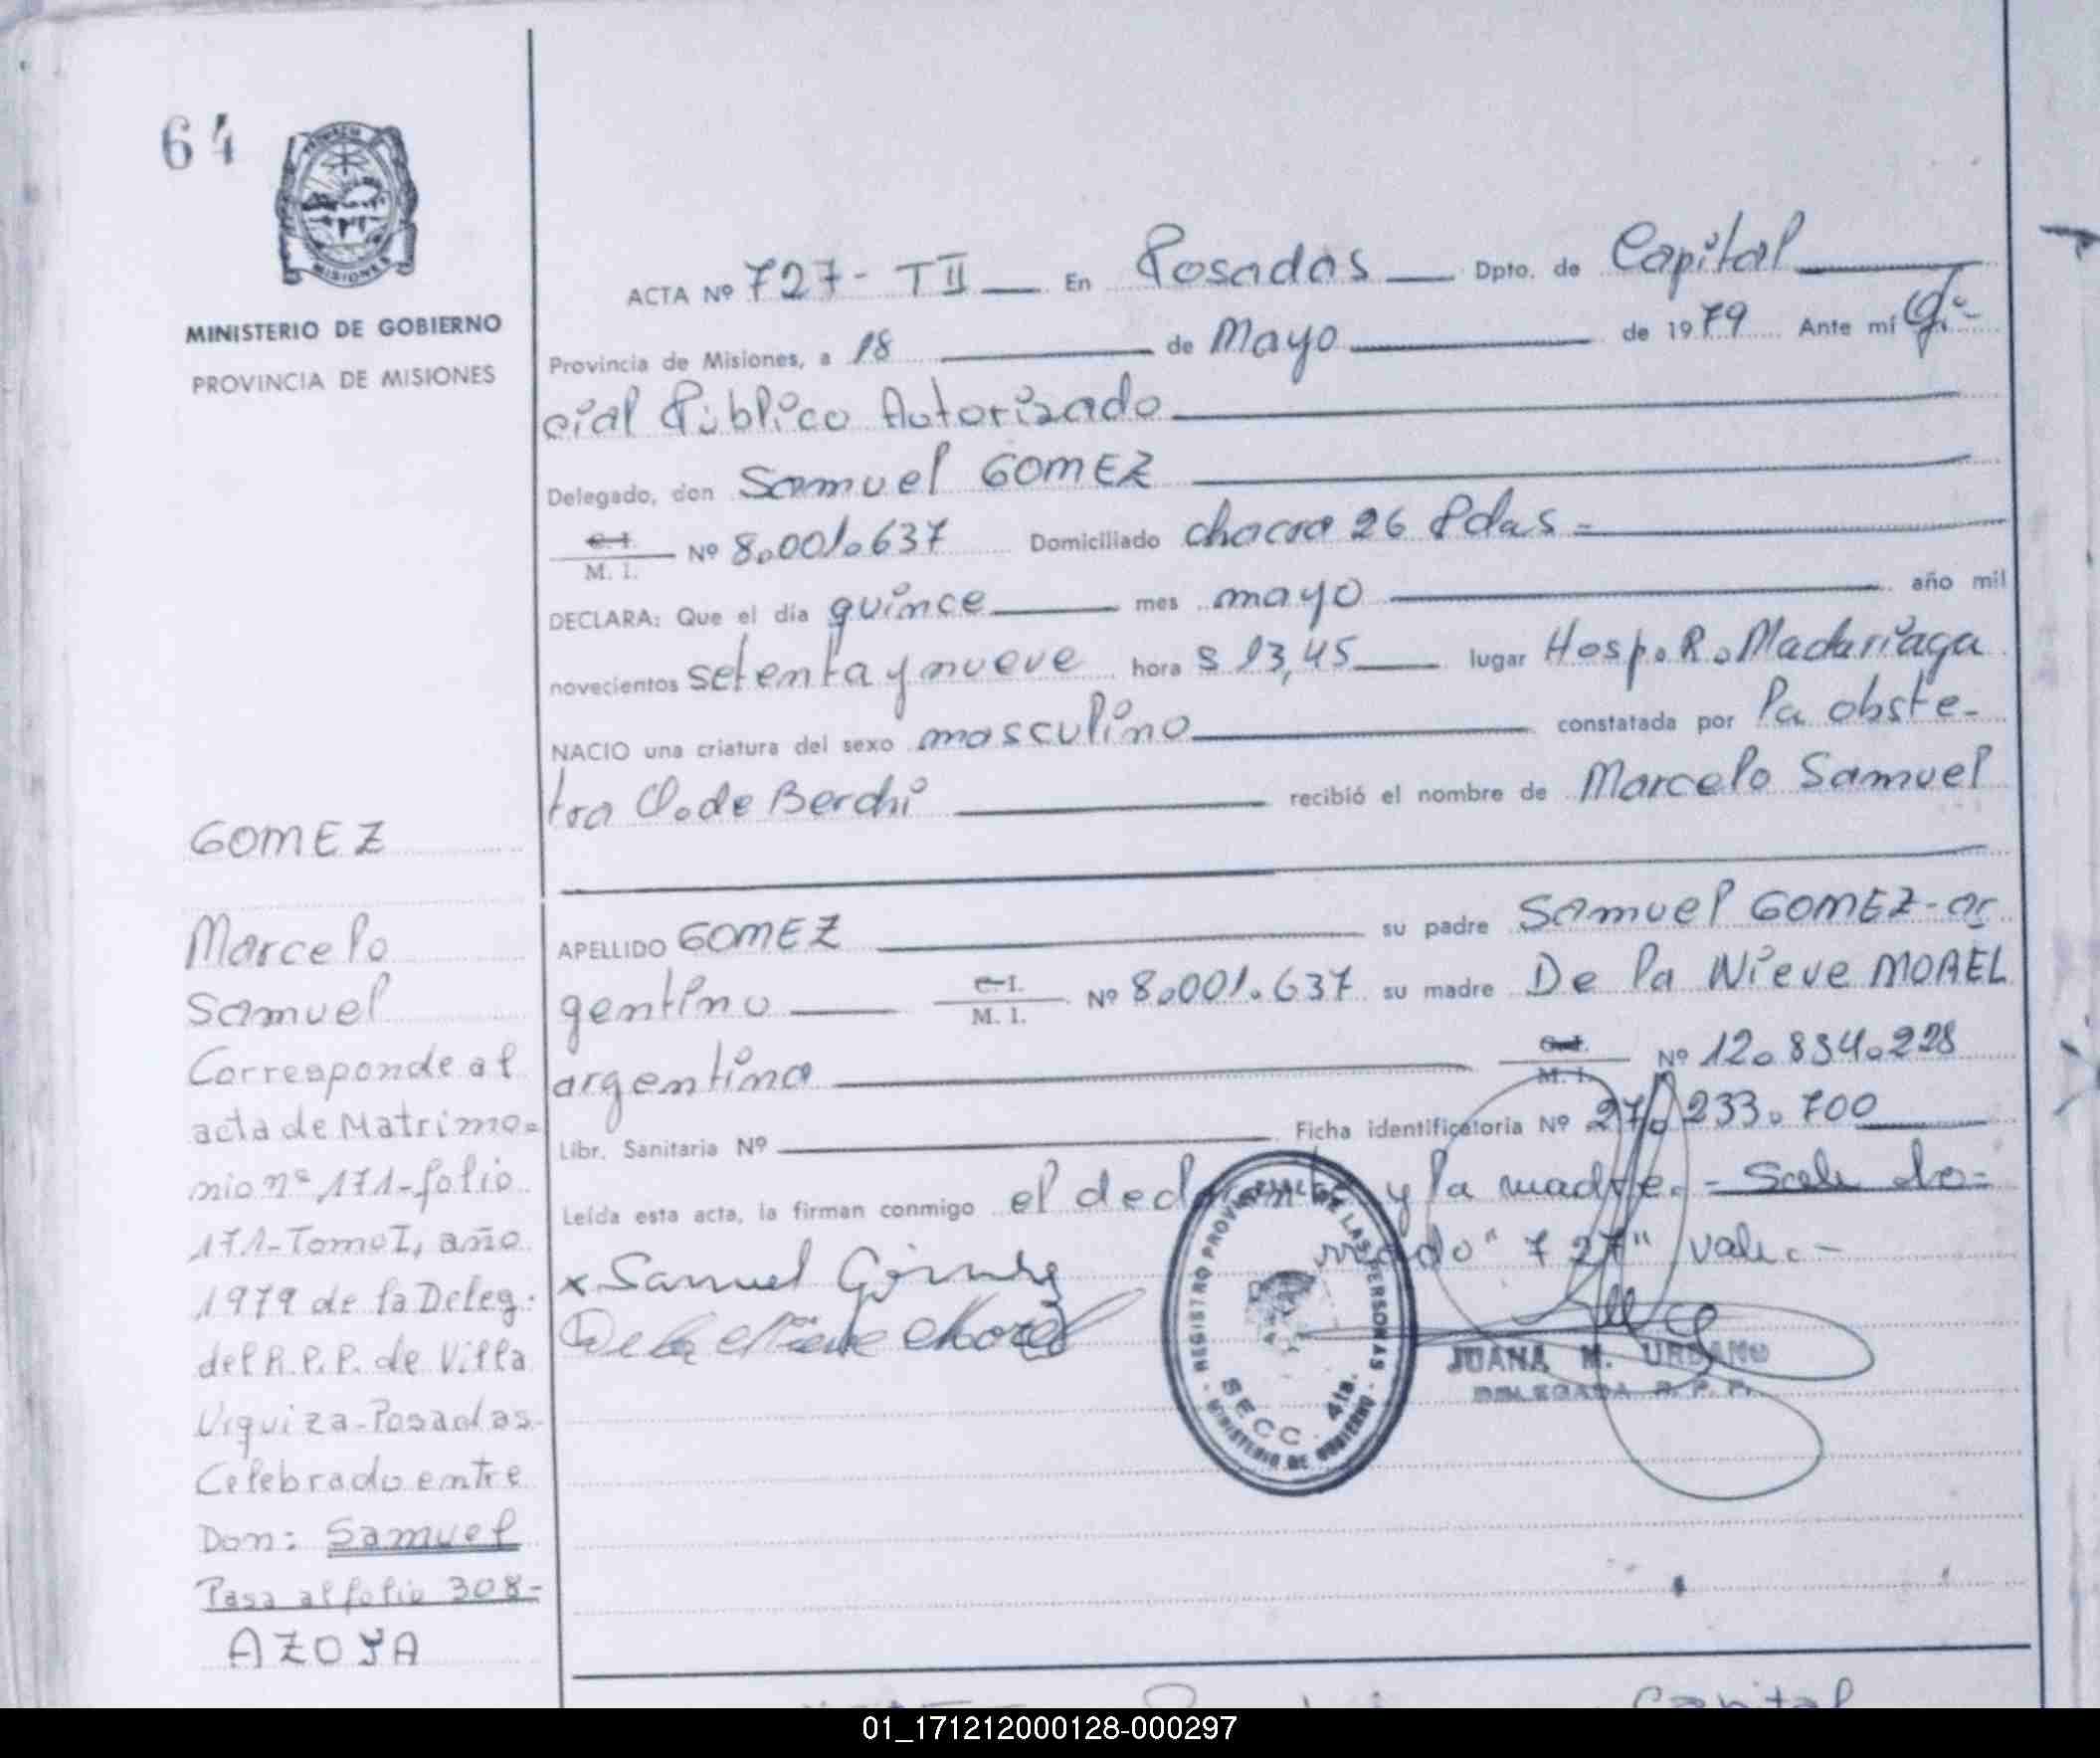 64
PROVINCIA
MISIONES
MINISTERIO DE GOBIERNO
PROVINCIA DE MISIONES
ACTA Nº 727- T II En Posadas Dpto. de Capital
Provincia de Misiones, a 18 de Mayo de 1979 Ante mí Ofi-
cial Público Autorizado
Delegado, don Samuel GOMEZ
C. I. M. I. Nº 8.001.637 Domiciliado chacra 26 Pdas -
DECLARA: Que el día quince mes mayo año mil
novecientos setenta y nueve hora s 13,45 lugar Hosp. R. Madariaga
NACIO una criatura del sexo masculino constatada por la obste-
tra O. de Berchi recibió el nombre de Marcelo Samuel
APELLIDO GOMEZ su padre Samuel GOMEZ-ar
gentino C. I. M. I. Nº 8.001.637 su madre De la Nieve MOREL
argentina C. I. M. I. Nº 12.834.228
Libr. Sanitaria Nº Ficha identificatoria Nº 27.233.700
Leída esta acta, la firman conmigo el declarante y la madre. -
"727" vale. -
x Samuel Gómez
De la Nieve Morel
REGISTRO PROVINCIAL DE LAS PERSONAS
SECC. 4ta.
MINISTERIO DE GOBIERNO
JUANA M. URBANO
DELEGADA R. P. P.
GOMEZ
Marcelo
Samuel
Corresponde al
acta de Matrimo=
nio nº 171-folio
171-Tomo I, año
1979 de la Deleg.
del R.P.P. de Villa
Urquiza-Posadas
Celebrado entre
Don: Samuel
Pasa al folio 308-
AZOYA
Capital
01_171212000128-000297